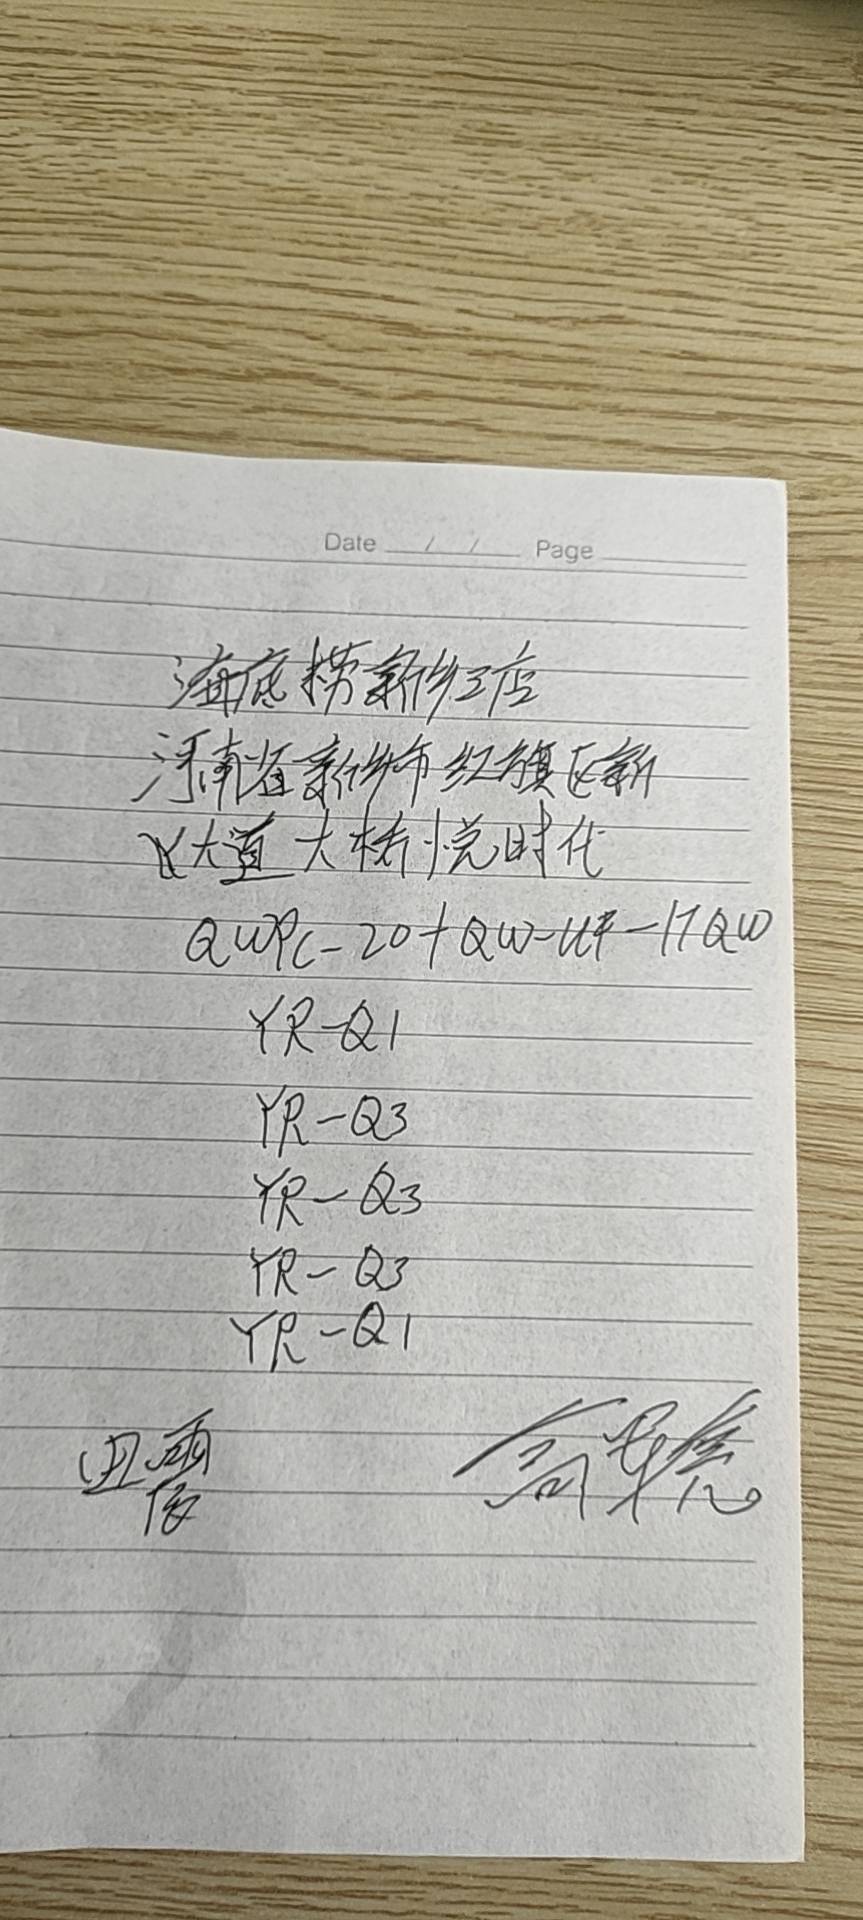 Date / / Page
海底捞新乡2店
河南省新乡市红旗区新
大道大桥悦时代
QWPC-20+QW-UF-17QW
YR-Q1
YR-Q3
YR-Q3
YR-Q3
YR-Q1